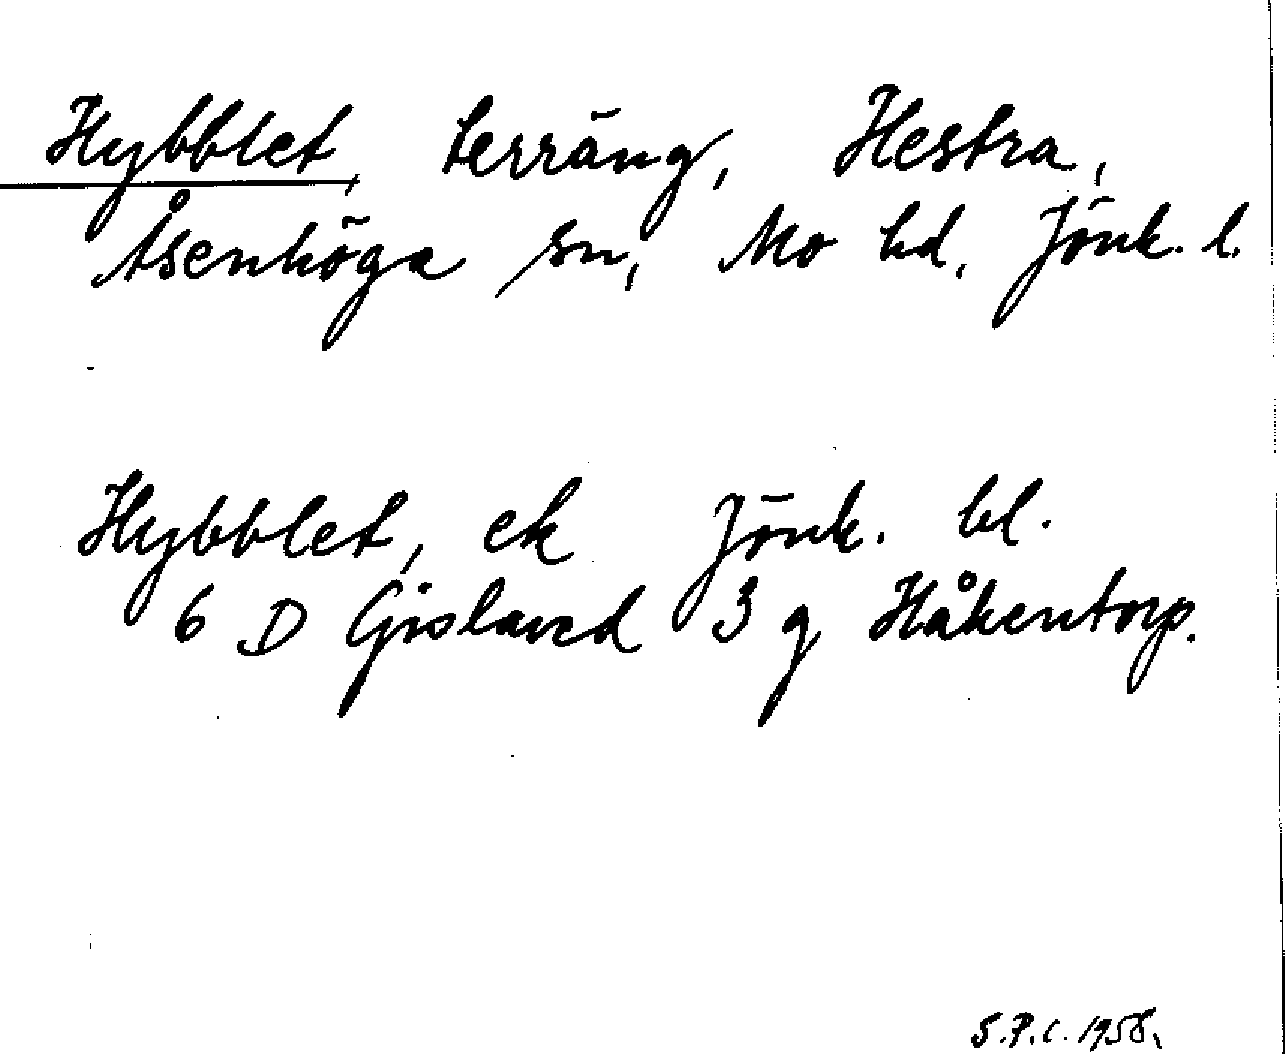 Hybblet, terräng, Hestra,
Åsenhöga sn, Mo hd, Jönk. l.
Hybblet, ek Jönk. bl.
6 D Gislaved 3 g Håkentorp.
S.P.C. 1958.